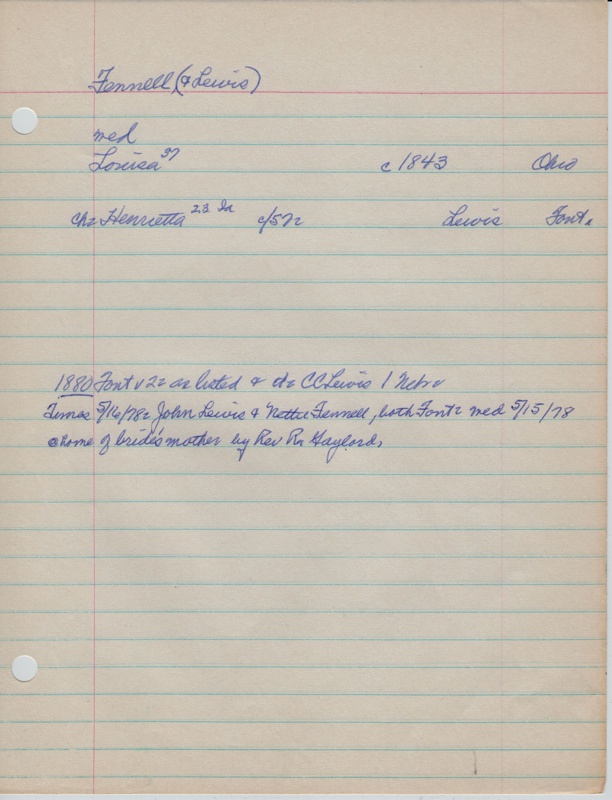 Fennell (& Lewis)
med
Louisa 37 c 1843 Ohio
ch: Henrietta 23 Ia c/57: Lewis Font.
1880 Font v 2: as listed & d: CC Lewis 1 Nebr
Times 5/16/78: John Lewis & Nettie Fennell, both Font: med 5/15/78
@ home of bride's mother by Rev Rn Gaylord.